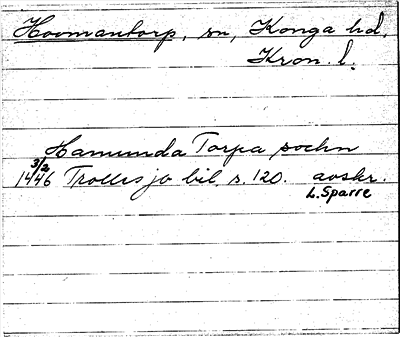 Hovmantorp, sn, Konga hd.
Kron. l.
Hamunda Torpa sochn
3/2
1446 Trollesjo bil. s. 120. avskr.
L. Sparre